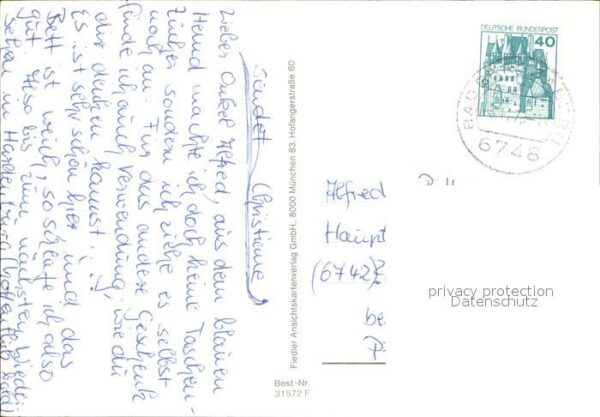 Lieber Onkel Alfred, aus dem blauen
Hemd machte ich doch keine Taschen-
tücher sondern ich ziehe es selbst
noch an. Für das andere Geschenk
finde ich auch Verwendung, wie du
dir denken kannst!
Es ist sehr schön hier und das
Bett ist weich, so schlafe ich also
gut. Also bis zum nächsten Wieder-
sehen in Hardenburg (hoffentlich bald)
sendet Christiane
Fiedler Ansichtskartenverlag GmbH., 8000 München 83, Hofangerstraße 60
Best.-Nr.
31572 F
DEUTSCHE BUNDESPOST
40
BAD
6748
Alfred
Haupt
(6742)
be
privacy protection
Datenschutz